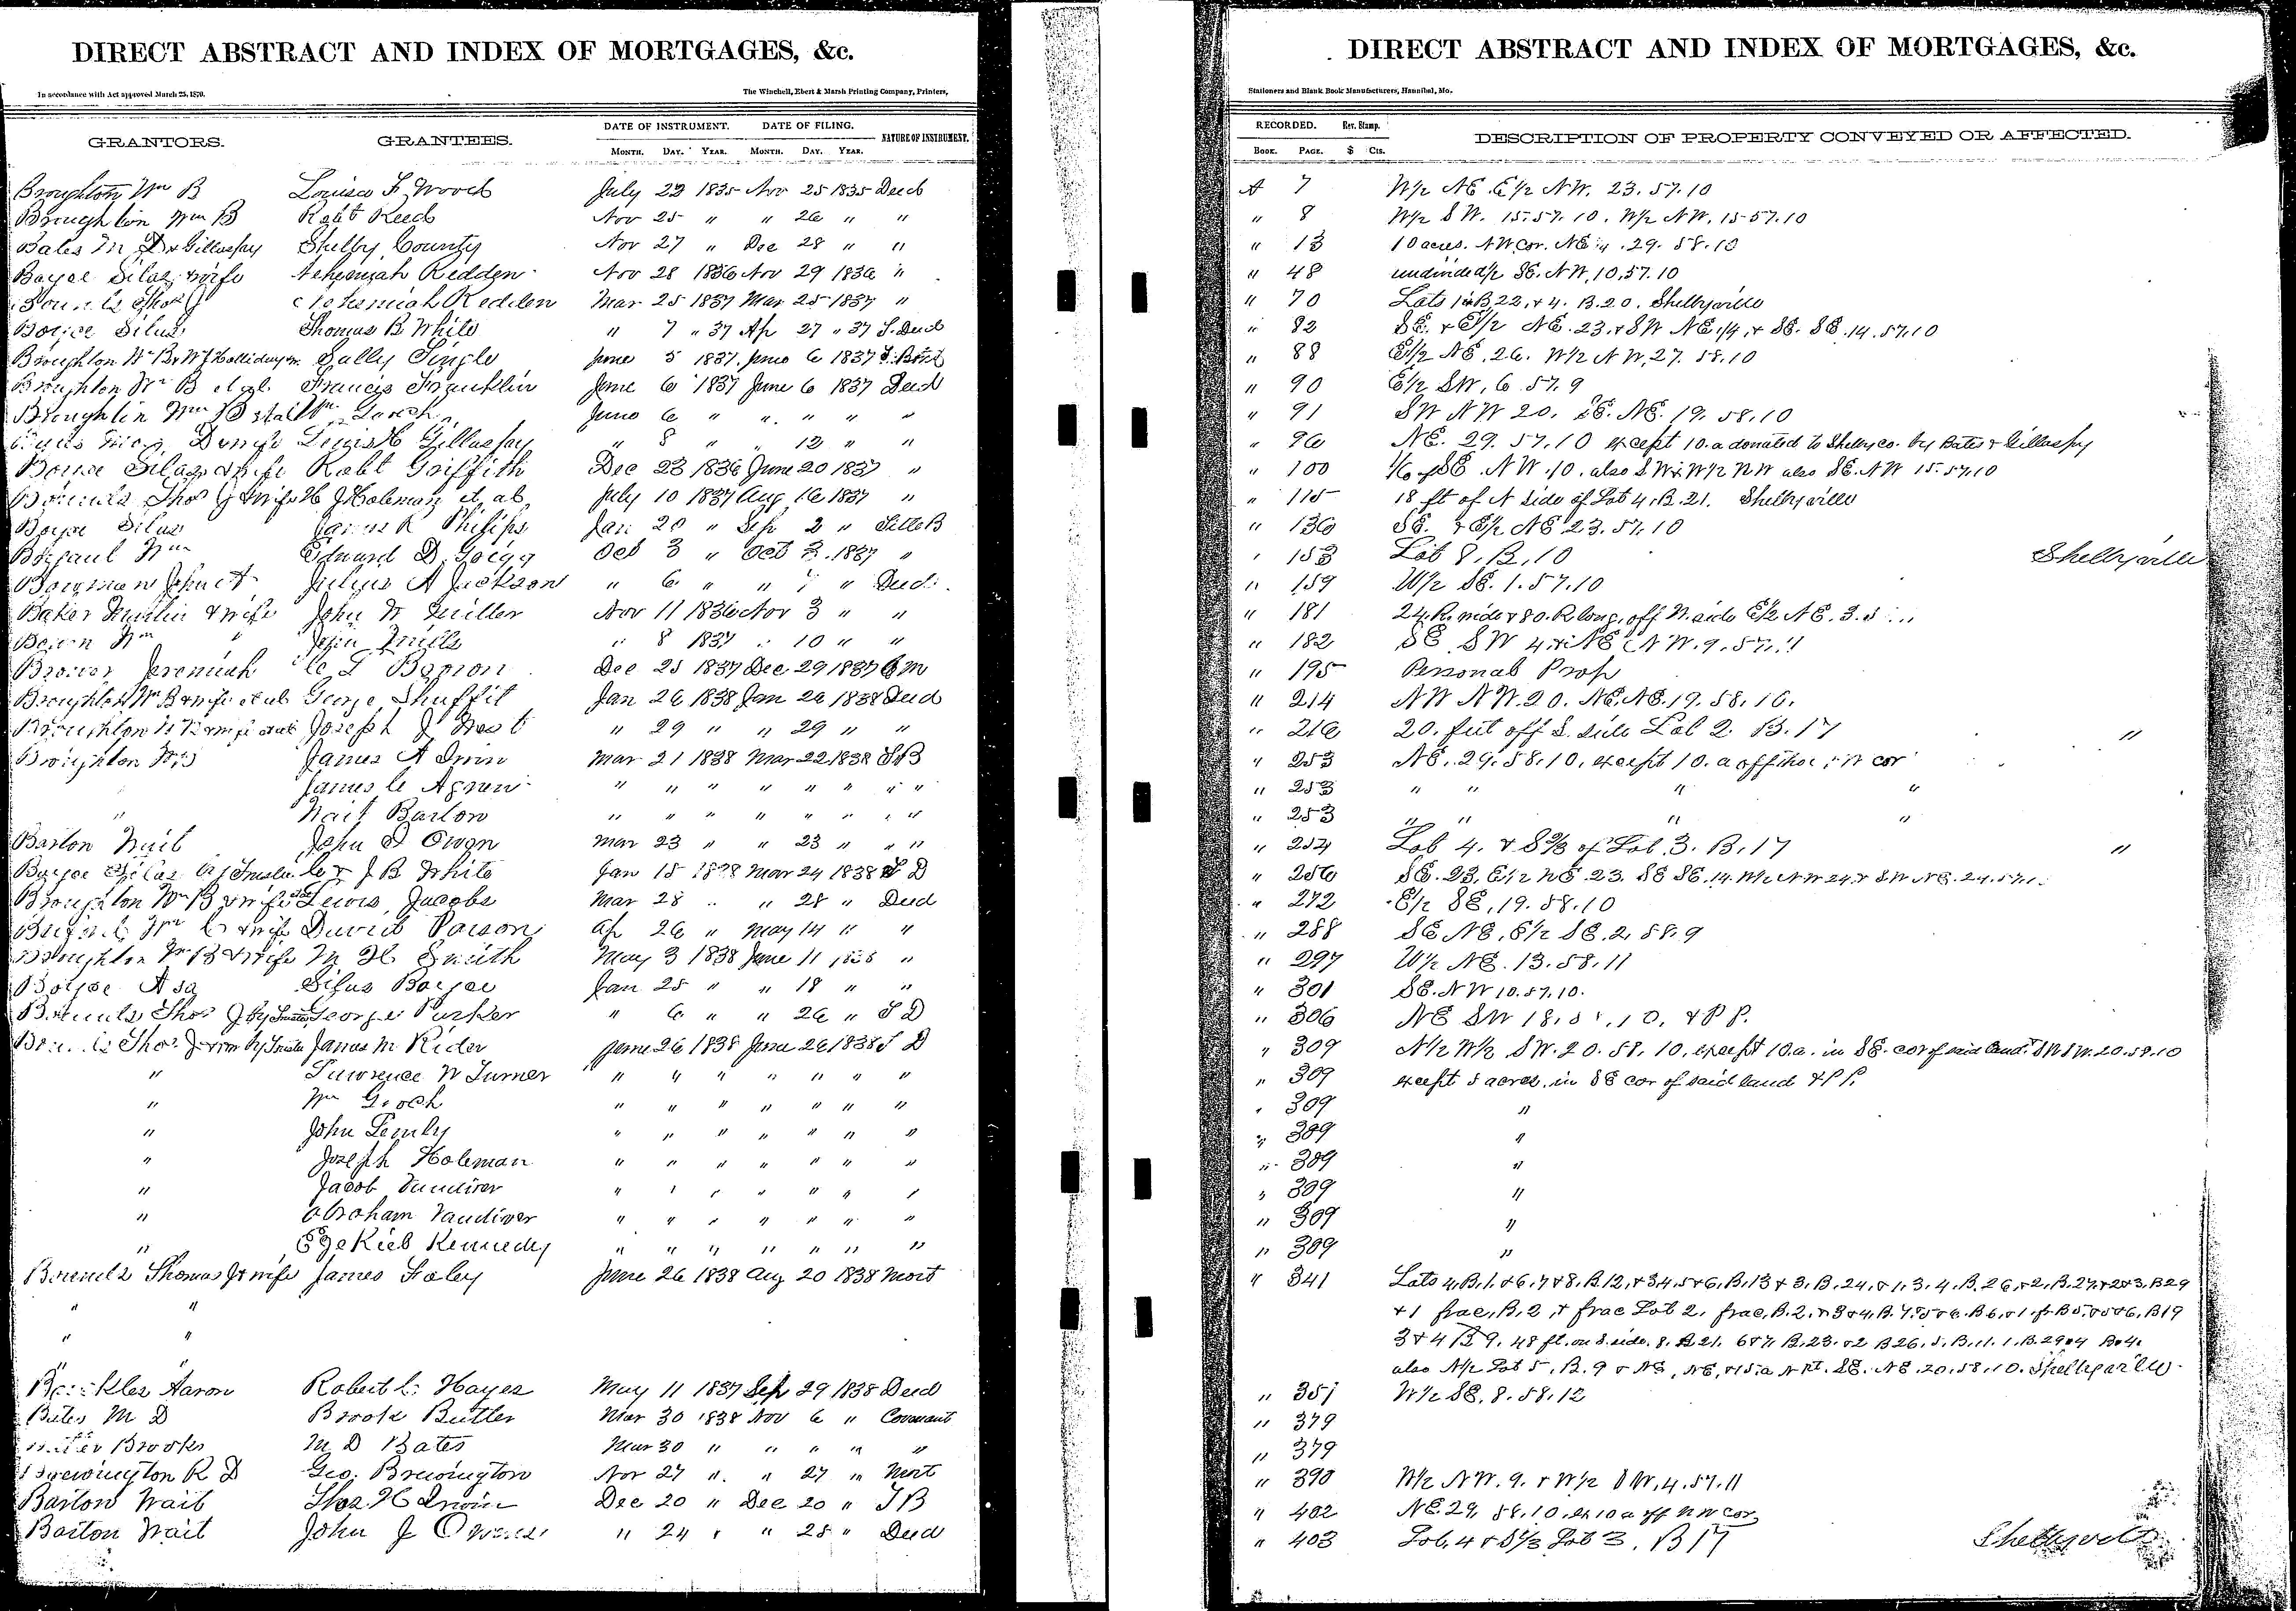 DIRECT ABSTRACT AND INDEX OF MORTGAGES, &c.
In accordance with Act approved March 25, 1870. The Winchell, Ebert & Marsh Printing Company, Printers,
GRANTORS. GRANTEES. DATE OF INSTRUMENT. DATE OF FILING. NATURE OF INSTRUMENT.
MONTH. DAY. YEAR. MONTH. DAY. YEAR.
Broughton Wm B Louisa F. Wood July 22 1835 Nov 25 1835 Deed
Broughton Wm B Robt Reed Nov 25 " " 26 " "
Bates M D & Gillaspy Shelby County Nov 27 " Dec 28 " "
Boyce Silas & wife Nehemiah Redden Nov 28 1836 Nov 29 1836 "
Thos J Nehemiah Redden Mar 25 1837 Mar 25 1837 "
Boyce Silas Thomas B White " 7 " 37 Ap 27 " 37 T. Deed
Broughton Wm B & W J Holliday Sally Single June 5 1837 June 6 1837 T. Bond
Broughton Wm B et al Francis Franklin June 6 1837 June 6 1837 Deed
Broughton Wm B et al Wm Gooch June 6 " " " " "
D & wife Lewis H Gillaspy " 8 " " 12 " "
Boyce Silas & wife Robt Griffith Dec 23 1836 June 20 1837 "
Bounds Thos J & wife H J Holeman et al July 10 1837 Aug 16 1837 "
Boyce Silas James R Phelips Jan 20 " Sep 2 " Title B
Wm Edward D. Gregg Oct 3 " Oct 3 1837 "
Bowman John A Julius A Jackson " 6 " " 7 " Deed
Baker Martin & wife John W Miller Nov 11 1836 Nov 3 " "
Wm " John Mills " 8 1837 " 10 " "
Brower Jeremiah C L Dec 25 1837 Dec 29 1837 C M
Broughton Wm B & wife et al George Shuffit Jan 26 1838 Jan 26 1838 Deed
Broughton W B & wife et al Joseph J West " 29 " " 29 " "
Broughton Wm B James A Mar 21 1838 Mar 22 1838 T B
James C Agnew " " " " " " " "
" Wait Barton " " " " " " " "
Barton Wait John J Owen Mar 23 " " 23 " " "
Boyce Silas By Trustee C & J B White Jan 15 1838 Mar 24 1838 T D
Broughton Wm B & wife Lewis Jacobs Mar 28 " " 28 " Deed
Wm C & wife David Parsons Ap 26 " May 14 " "
Broughton Wm B & wife M H Smith May 3 1838 June 11 1838 "
Boyce Asa Silas Boyce Jan 25 " " 18 " "
Bounds Thos J By Trustee George Parker " 6 " " 26 " T D
Bounds Thos J & wife By Trustee James M Rider June 26 1838 June 26 1838 T D
" Lawrence W Turner " " " " " " "
" Wm Gooch " " " " " " "
" John Lemly " " " " " " "
" Joseph Holeman " " " " " " "
" Jacob Vandiver " " " " " " "
" Abraham Vandiver " " " " " " "
" Ezekiel Kennedy " " " " " " "
Bounds Thomas J & wife James Foley June 26 1838 Aug 20 1838 Mort
" "
" "
" "
Aaron Robert C. Hayes May 11 1837 Sep 29 1838 Deed
Bates M D Brook Butler Mar 30 1838 Nov 6 " Covenant
Butler Brooks M D Bates Mar 30 " " " " "
Brewington R D Geo. Brewington Nov 27 " " 27 " Mort
Barton Wait Thos H Dec 20 " Dec 20 " T B
Barton Wait John J Owens " 24 " " 25 " Deed
DIRECT ABSTRACT AND INDEX OF MORTGAGES, &c.
Stationers and Blank Book Manufacturers, Hannibal, Mo.
RECORDED. Rev. Stamp. DESCRIPTION OF PROPERTY CONVEYED OR AFFECTED.
BOOK. PAGE. $ Cts.
A 7 W/2 NE. E/2 NW. 23. 57. 10
" 8 W/2 SW. 15. 57. 10. W/2 NW. 15 57. 10
" 13 10 acres. NW cor. NE 1/4. 29. 58. 10
" 48 undivided/2 SE. NW, 10, 57. 10
" 70 Lots 1 B 22, & 4. B. 20. Shelbyville
" 82 SE. & E/2 NE. 23. & SW NE 1/4, & SE. SE. 14. 57. 10
" 88 E/2 NE. 26. W/2 NW, 27. 58. 10
" 90 E/2 SW, 6. 57. 9
" 91 SW NW 20. SE. NE. 19. 58. 10
" 96 NE. 29. 57. 10 except 10. a donated to Shelby co. by Bates & Gillaspy
" 100 1/6 of SE NW. 10. also SW & W/2 NW also SE. NW 15. 57. 10
" 115 18 ft of N side of Lot 4. B. 21. Shelbyville
" 136 SE. & E/2 NE 23. 57. 10
" 153 Lot 8, B, 10 Shelbyville
" 159 W/2 SE. 1. 57. 10
" 181 24 R. wide & 80. R long. off N. side E/2 NE. 3.
" 182 SE SW 4 & NE NW. 9. 57. 11
" 195 Personal Prop
" 214 NW NW. 20. NE. NE. 19. 58. 10.
" 216 20. feet off S. side Lot 2. B. 17 "
" 253 NE. 29. 58. 10. except 10. a off the NW cor
" 253 " " " "
" 253 " " " "
" 254 Lot 4. & S 2/3 of Lot 3. B. 17 "
" 256 SE. 23. E/2 NE. 23. SE SE. 14. W/2 NW 24 & SW NE. 24. 57.
" 272 E/2 SE, 19. 58. 10
" 288 SE NE, E/2 SE. 2, 58. 9
" 297 W/2 NE. 13. 58. 11
" 301 SE. NW 10. 57. 10.
" 306 NE SW 18. 10. & P P.
" 309 N/2 W/2 SW. 20. 58. 10. except 10. a. in SE. cor of said land. & SW SW. 20. 58. 10
" 309 except 5 acres. in SE cor of said land & P P.
" 309 "
" 309 "
" 309 "
" 309 "
" 309 "
" 309 "
" 341 Lots 4, B, 1. & 6, 7 & 8, B. 12, & 3 4, 5 & 6, B, 13 & 3, B. 24, & 1, 3, 4, B. 26, & 2, B. 27, & 2 & 3, B 29
& 1 frac, B. 2, & frac Lot 2, frac, B. 2, & 3 & 4, B. 7. B 6, & 1 & 6, B 19
3 & 4 B 9. 48 ft. on S. side. 8. B 21. 6 & 7 B. 23. & 2 B 26.
also N/2 Lot 5, B. 9 & NE, NE, & 15. a N pt. SE. NE. 20. 58. 10. Shelbyville
" 351 W/2 SE. 8. 58. 12
" 379
" 379
" 390 W/2 NW. 9. & W/2 SW. 4. 57. 11
" 402 NE. 29, 58. 10. ex 10 a off NW cor
" 403 Lot, 4 & S 2/3 Lot 3. B 17 Shelbyville